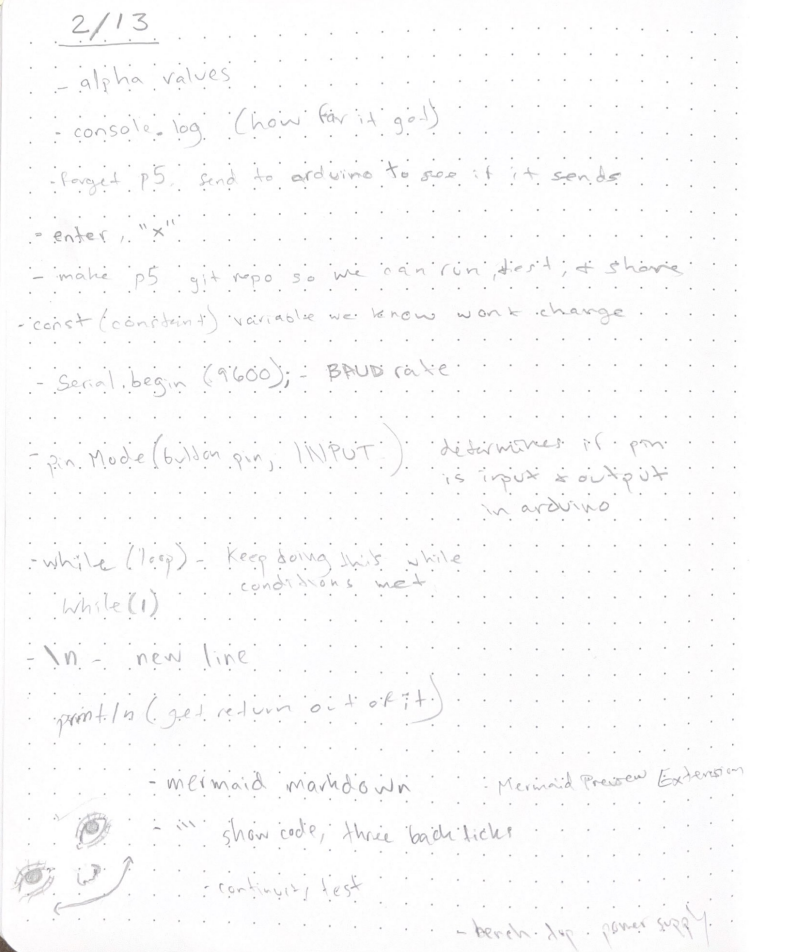 2/13
- alpha values
- console.log (how far it got)
- forget p5, send to arduino to see if it sends
- enter, "x"
- make p5 git repo so we can run, test, & share
- const (constaint) variable we know wont change
- Serial.begin (9600); - BAUD rate
- pin.Mode(button pin, INPUT) determines if pin
is input & output
in arduino
- while (loop) - keep doing this while
conditions met
while(1)
- \n - new line
print/n (get return out of it)
- mermaid markdown - Mermaid Preview Extension
- ``` show code, three back ticks
- continuity test
- bench top power supply